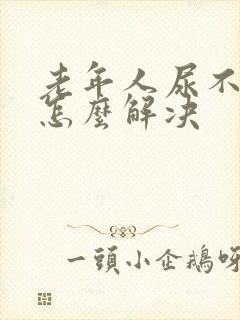 老年人尿不
怎麽解决
一頭小企鵝呀